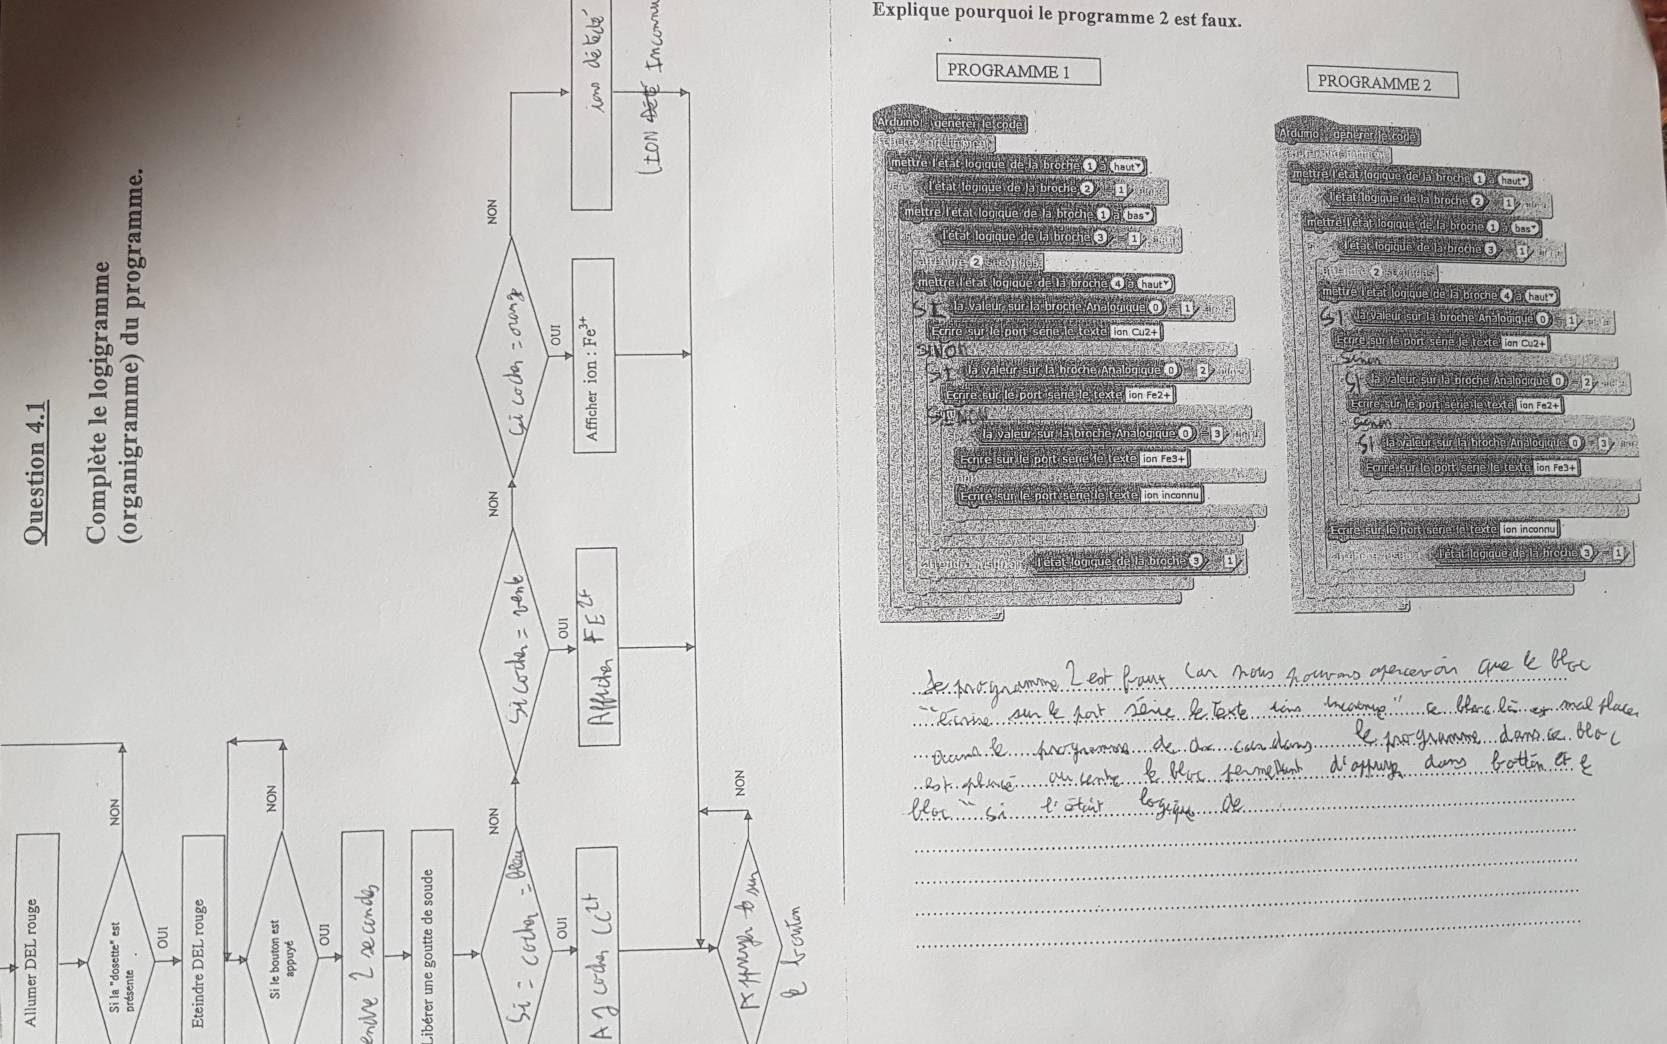 Question 4.1
Complète le logigramme
(organigramme) du programme.
Allumer DEL rouge
Si la "dosette" est
présente
NON
OUI
Eteindre DEL rouge
Si le bouton est
appuyé
NON
OUI
endre 2 secondes
Libérer une goutte de soude
Si = cocher = bleu
NON
OUI
Si cocher = verte
NON
OUI
Afficher FE2+
Si cocher = orange
NON
OUI
Afficher ion : Fe3+
ions détecté
(ION Inconnu
Appuyer
le bouton
NON
Explique pourquoi le programme 2 est faux.
PROGRAMME 1
Arduino - générer le code
mettre l'état logique de la broche 1 à haut
l'état logique de la broche 2 = 1
mettre l'état logique de la broche 1 à bas
l'état logique de la broche 3 = 1
2
mettre l'état logique de la broche 4 à haut
SI la valeur sur la broche Analogique 0 = 1
Ecrire sur le port série le texte ion Cu2+
SINON
SI la valeur sur la broche Analogique 0 = 2
Ecrire sur le port série le texte ion Fe2+
SINON
la valeur sur la broche Analogique 0 = 3
Ecrire sur le port série le texte ion Fe3+
Ecrire sur le port série le texte ion inconnu
l'état logique de la broche 3 = 1
PROGRAMME 2
Arduino - générer le code
mettre l'état logique de la broche 1 à haut
l'état logique de la broche 2 = 1
mettre l'état logique de la broche 1 à bas
l'état logique de la broche 3 = 1
2
mettre l'état logique de la broche 4 à haut
SI la valeur sur la broche Analogique 0 = 1
Ecrire sur le port série le texte ion Cu2+
Sinon
SI la valeur sur la broche Analogique 0 = 2
Ecrire sur le port série le texte ion Fe2+
Sinon
SI la valeur sur la broche Analogique 0 = 3
Ecrire sur le port série le texte ion Fe3+
Ecrire sur le port série le texte ion inconnu
l'état logique de la broche 3 = 1
Le programme 2 est faux car nous pouvons apercevoir que le bloc
sur le port série le texte ions ce là mal placer
le programme de le programme dans ce bloc
est le bloc permettant dans botton et le
bloc " si l'était logique de